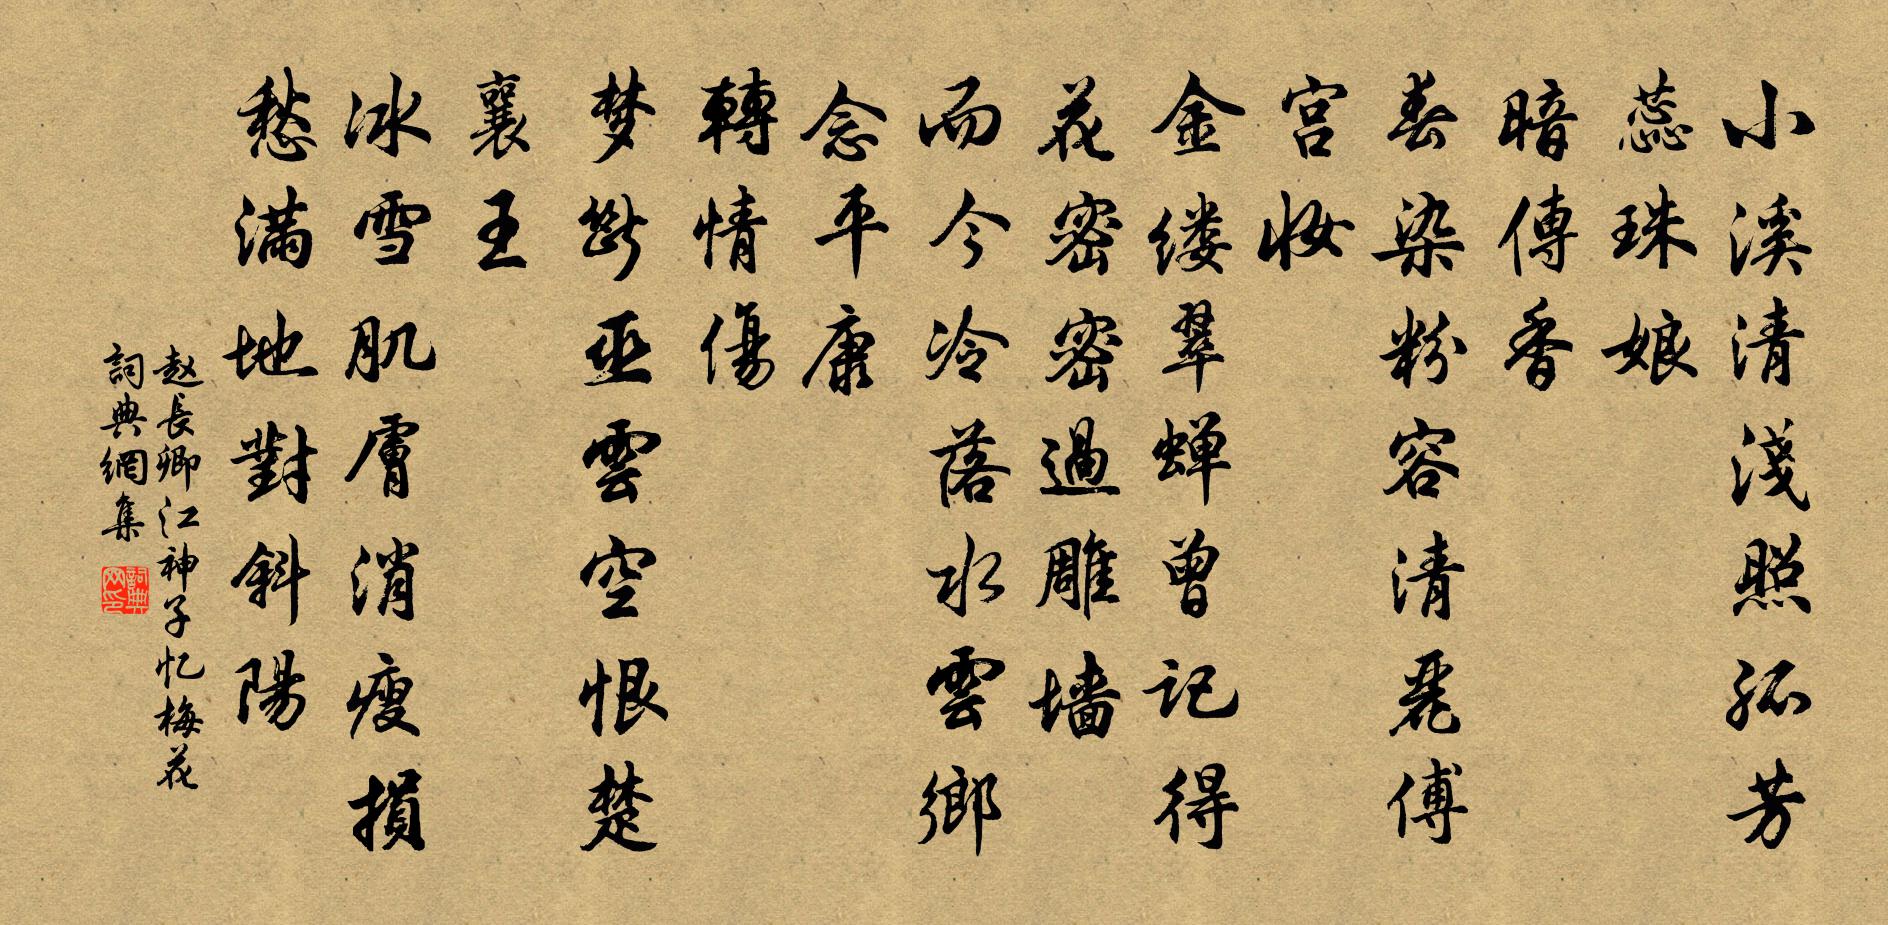 小溪清淺照孤芳
蕊珠娘
暗傳香
春染粉容清麗傅
宫妝
金缕翠蝉曾记得
花密密過雕墙
而今冷落水雲鄉
念平康
轉情傷
梦斷巫雲空恨楚
襄王
冰雪肌膚消瘦損
愁滿地對斜陽
赵長卿江神子忆梅花
詞典網集
詞典网印